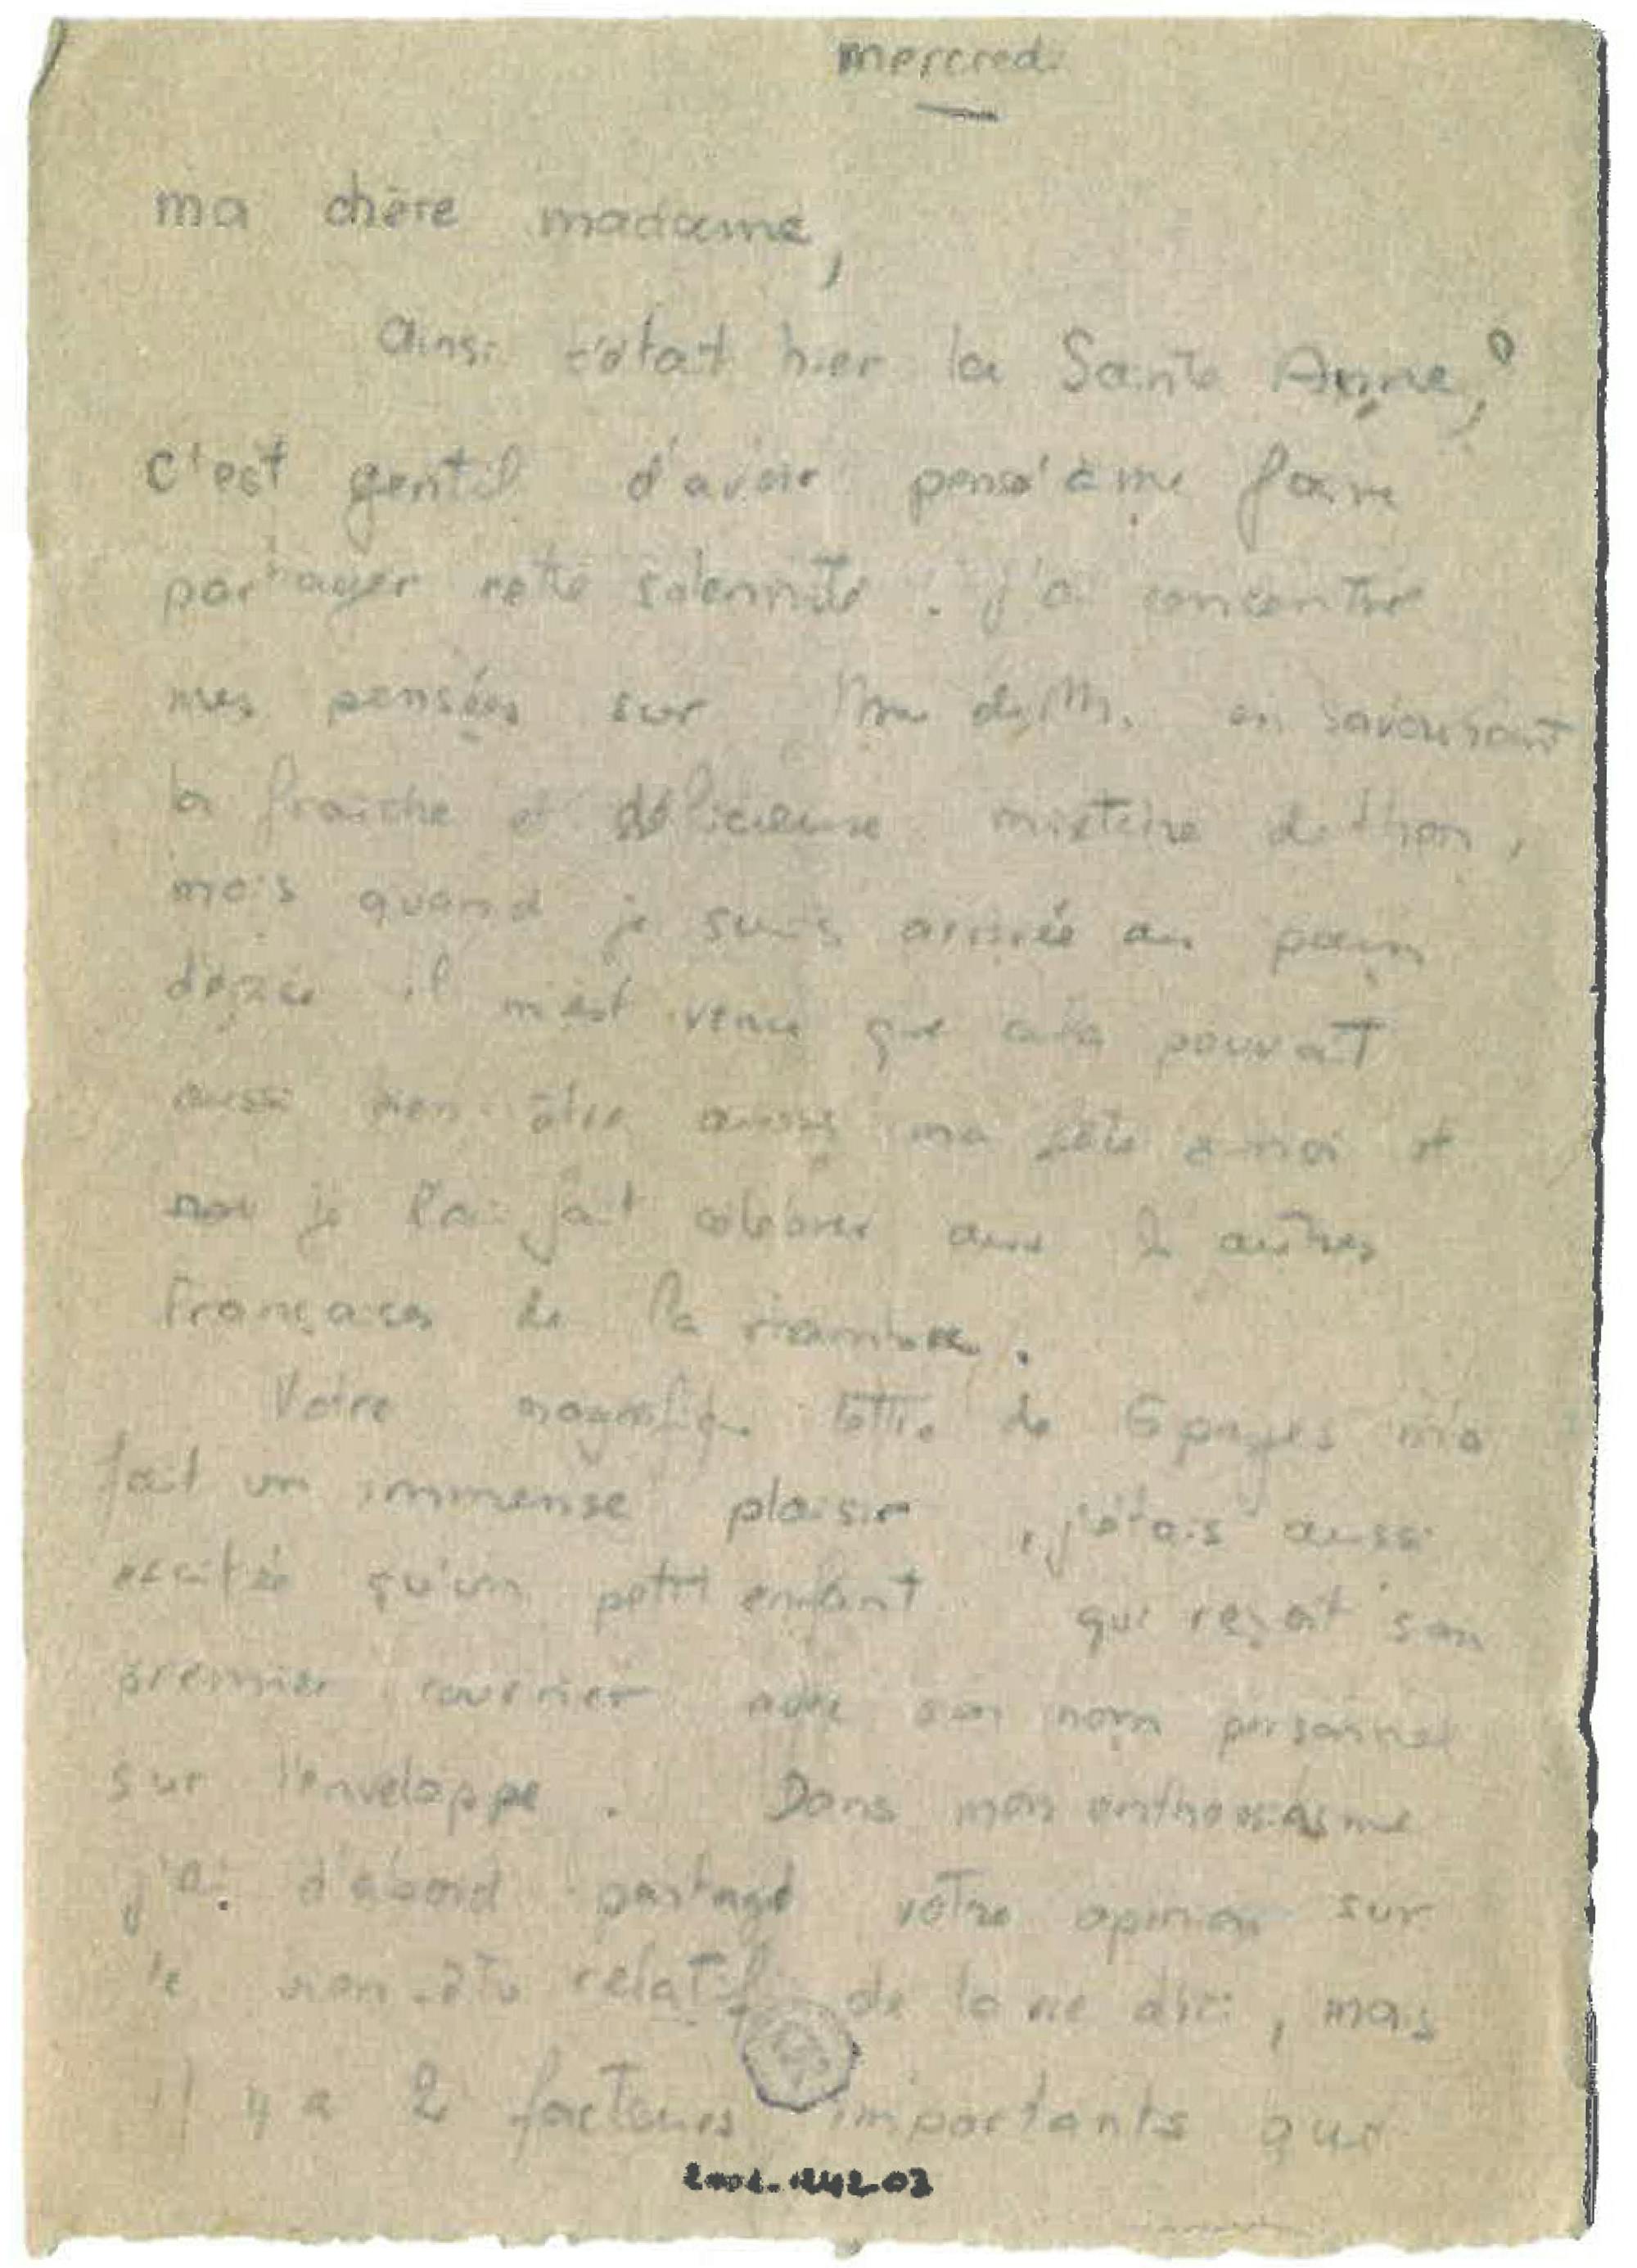 mercredi
ma chère madame,
Ainsi c'était hier la Sainte Anne,
c'est gentil d'avoir pensé à me faire
partager cette solennité. J'ai concentré
mes pensées sur Mme de M. en savourant
la fraîche et délicieuse mixture de thon,
mais quand je suis arrivée au pain
d'épice il m'est venu que cela pouvait
aussi bien être aussi ma fête à moi et
je l'ai fait célébrer aux 2 autres
Françaises de la chambre.
Votre magnifique lettre de 6 pages m'a
fait un immense plaisir, j'étais aussi
excitée qu'un petit enfant qui reçoit son
premier courrier avec son nom personnel
sur l'enveloppe. Dans mon enthousiasme
j'ai d'abord partagé votre opinion sur
le bien-être relatif de la vie d'ici, mais
il y a 2 facteurs importants que